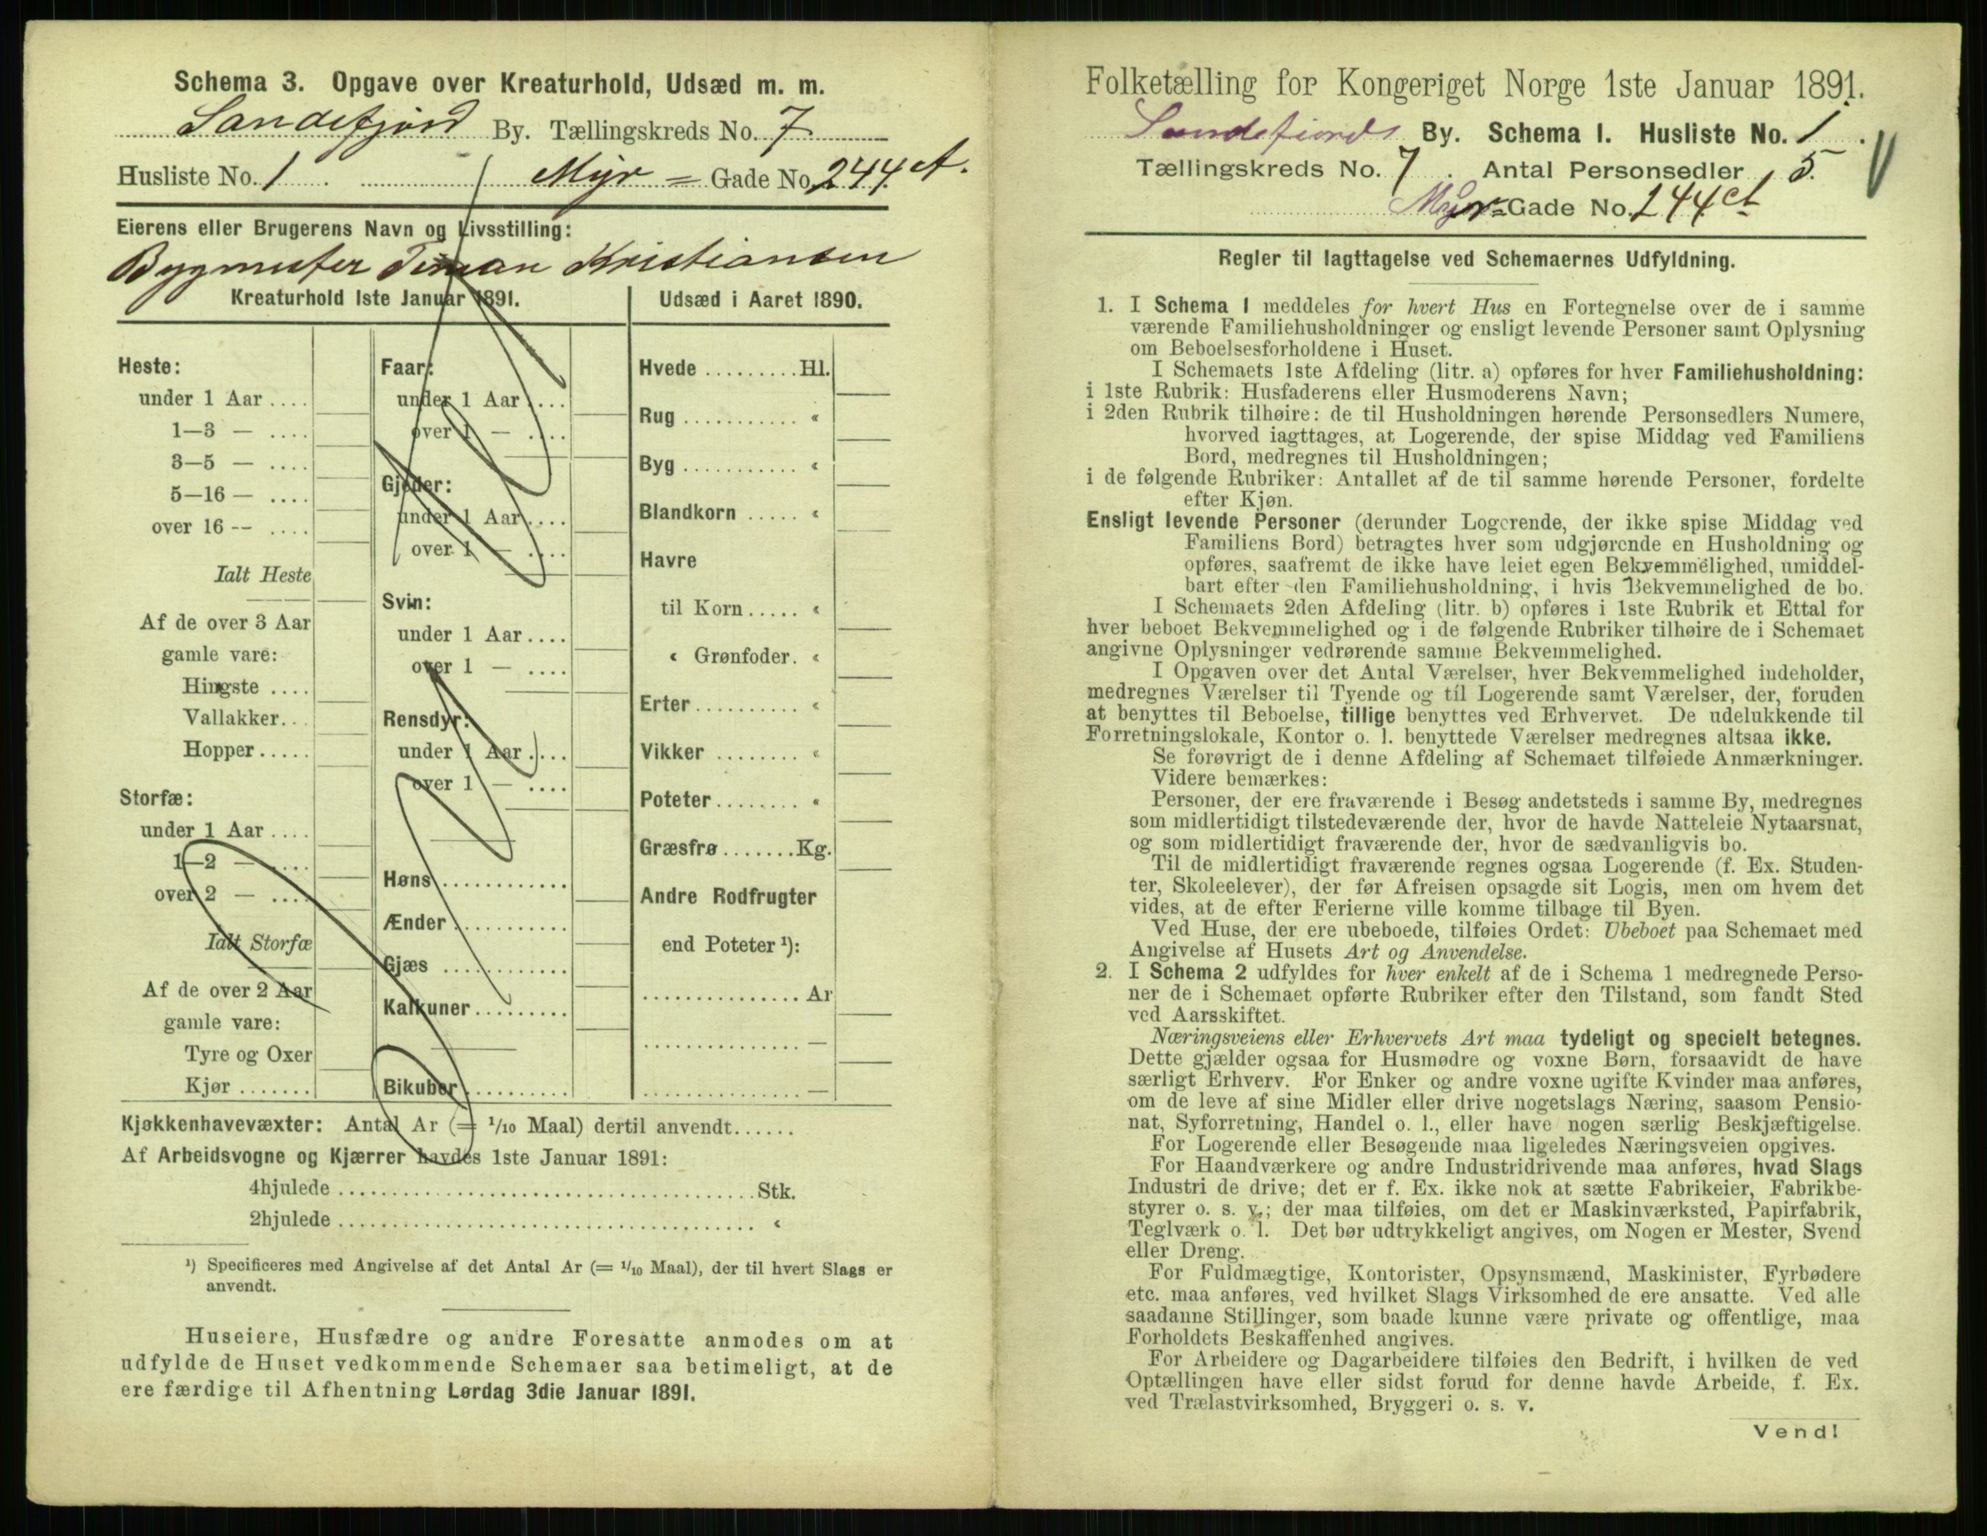 Schema 3. Opgave over Kreaturhold, Udsæd m. m.
Sandefjord By. Tællingskreds No. 7
Husliste No. 1 . Myr = Gade No. 244. A.
Eierens eller Brugerens Navn og Livsstilling:
Bygmester Timan Kristiansen
Kreaturhold 1ste Januar 1891.
Heste:
under 1 Aar ....
1—3 — ....
3—5 — ....
5—16 — ....
over 16 -- ....
Ialt Heste
Af de over 3 Aar
gamle vare:
Hingste ....
Vallakker. . .
Hopper .....
Storfæ:
under 1 Aar ....
1—2 — ....
over 2 — ....
Ialt Storfæ
Af de over 2 Aar
gamle vare:
Tyre og Oxer
Kjør .......
Faar:
under 1 Aar ....
over 1 — ....
Gjeder:
under 1 Aar ....
over 1 — ....
Svin:
under 1 Aar ....
over 1 — ....
Rensdyr:
under 1 Aar ....
over 1 — ....
Høns ............
Ænder ...........
Gjæs ............
Kalkuner .........
Bikuber ..........
Udsæd i Aaret 1890.
Hvede ......... Hl.
Rug ........... “
Byg ........... “
Blandkorn ..... “
Havre
til Korn ..... “
“ Grønfoder. “
Erter .......... “
Vikker ........ “
Poteter ........ “
Græsfrø ....... Kg.
Andre Rodfrugter
end Poteter ¹):
............... Ar
............... —
............... —
Kjøkkenhavevæxter: Antal Ar (= 1/10 Maal) dertil anvendt......
Af Arbeidsvogne og Kjærrer havdes 1ste Januar 1891:
4hjulede ..................................... Stk.
2hjulede ..................................... “
¹) Specificeres med Angivelse af det Antal Ar (= 1/10 Maal), der til hvert Slags er
anvendt.
Huseiere, Husfædre og andre Foresatte anmodes om at
udfylde de Huset vedkommende Schemaer saa betimeligt, at de
ere færdige til Afhentning Lørdag 3die Januar 1891.
Folketælling for Kongeriget Norge 1ste Januar 1891.
Sandefjords By. Schema I. Husliste No. 1.
Tællingskreds No. 7 . Antal Personsedler 5.
Myr=Gade No. 244 ct
Regler til Iagttagelse ved Schemaernes Udfyldning.
1. I Schema 1 meddeles for hvert Hus en Fortegnelse over de i samme
værende Familiehusholdninger og ensligt levende Personer samt Oplysning
om Beboelsesforholdene i Huset.
I Schemaets 1ste Afdeling (litr. a) opføres for hver Familiehusholdning:
i 1ste Rubrik: Husfaderens eller Husmoderens Navn;
i 2den Rubrik tilhøire: de til Husholdningen hørende Personsedlers Numere,
hvorved iagttages, at Logerende, der spise Middag ved Familiens
Bord, medregnes til Husholdningen;
i de følgende Rubriker: Antallet af de til samme hørende Personer, fordelte
efter Kjøn.
Ensligt levende Personer (derunder Logerende, der ikke spise Middag ved
Familiens Bord) betragtes hver som udgjørende en Husholdning og
opføres, saafremt de ikke have leiet egen Bekvemmelighed, umiddel-
bart efter den Familiehusholdning, i hvis Bekvemmelighed de bo.
I Schemaets 2den Afdeling (litr. b) opføres i 1ste Rubrik et Ettal for
hver beboet Bekvemmelighed og i de følgende Rubriker tilhøire de i Schemaet
angivne Oplysninger vedrørende samme Bekvemmelighed.
I Opgaven over det Antal Værelser, hver Bekvemmelighed indeholder,
medregnes Værelser til Tyende og til Logerende samt Værelser, der, foruden
at benyttes til Beboelse, tillige benyttes ved Erhvervet. De udelukkende til
Forretningslokale, Kontor o. l. benyttede Værelser medregnes altsaa ikke.
Se forøvrigt de i denne Afdeling af Schemaet tilføiede Anmærkninger.
Videre bemærkes:
Personer, der ere fraværende i Besøg andetsteds i samme By, medregnes
som midlertidigt tilstedeværende der, hvor de havde Natteleie Nytaarsnat,
og som midlertidigt fraværende der, hvor de sædvanligvis bo.
Til de midlertidigt fraværende regnes ogsaa Logerende (f. Ex. Studen-
ter, Skoleelever), der før Afreisen opsagde sit Logis, men om hvem det
vides, at de efter Ferierne ville komme tilbage til Byen.
Ved Huse, der ere ubeboede, tilføies Ordet: Ubeboet paa Schemaet med
Angivelse af Husets Art og Anvendelse.
2. I Schema 2 udfyldes for hver enkelt af de i Schema 1 medregnede Perso-
ner de i Schemaet opførte Rubriker efter den Tilstand, som fandt Sted
ved Aarsskiftet.
Næringsveiens eller Erhvervets Art maa tydeligt og specielt betegnes.
Dette gjælder ogsaa for Husmødre og voxne Børn, forsaavidt de have
særligt Erhverv. For Enker og andre voxne ugifte Kvinder maa anføres,
om de leve af sine Midler eller drive nogetslags Næring, saasom Pensio-
nat, Syforretning, Handel o. l., eller have nogen særlig Beskjæftigelse.
For Logerende eller Besøgende maa ligeledes Næringsveien opgives.
For Haandværkere og andre Industridrivende maa anføres, hvad Slags
Industri de drive; det er f. Ex. ikke nok at sætte Fabrikeier, Fabrikbe-
styrer o. s. v.; der maa tilføies, om det er Maskinværksted, Papirfabrik,
Teglværk o. l. Det bør udtrykkeligt angives, om Nogen er Mester, Svend
eller Dreng.
For Fuldmægtige, Kontorister, Opsynsmænd, Maskinister, Fyrbødere
etc. maa anføres, ved hvilket Slags Virksomhed de ere ansatte. Ved alle
saadanne Stillinger, som baade kunne være private og offentlige, maa
Forholdets Beskaffenhed angives.
For Arbeidere og Dagarbeidere tilføies den Bedrift, i hvilken de ved
Optællingen have eller sidst forud for denne havde Arbeide, f. Ex.
ved Trælastvirksomhed, Bryggeri o. s. v.
Vend!